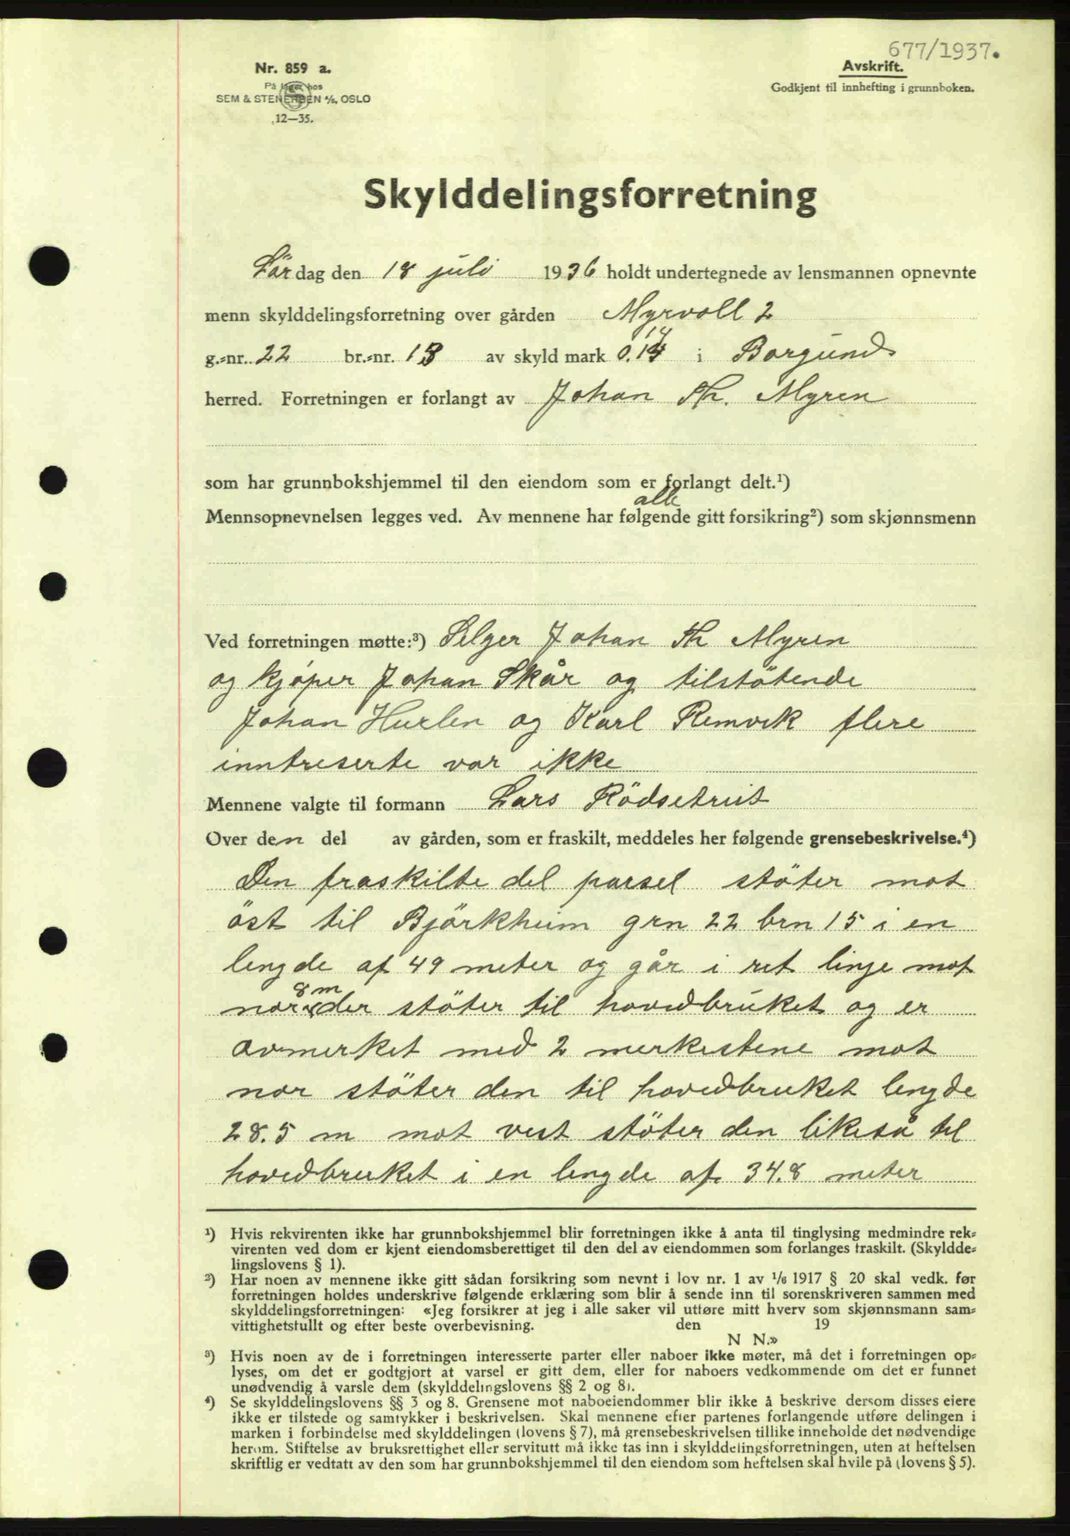 677/1937.
Nr. 859 a.
På lager hos
SEM & STENERSEN A/S, OSLO
12—35.
Avskrift.
Godkjent til innhefting i grunnboken.
Skylddelingsforretning
Lördag den 18 juli 1936 holdt undertegnede av lensmannen opnevnte
menn skylddelingsforretning over gården Myrvoll 2
g.-nr. 22 br.-nr. 13 av skyld mark 0.14 i Borgund
herred. Forretningen er forlangt av Johan Th. Myren
som har grunnbokshjemmel til den eiendom som er forlangt delt.¹)
alle
Mennsopnevnelsen legges ved. Av mennene har følgende gitt forsikring²) som skjønnsmenn
Ved forretningen møtte:³) Selger Johan Th Myren
og kjøper Johan Skår og tilstötende
Johan Hurlen og Karl Remvik flere
inntreserte var ikke
Mennene valgte til formann Lars Rödsetreit
Over den del av gården, som er fraskilt, meddeles her følgende grensebeskrivelse.⁴)
Den fraskilte del parsel stöter mot
öst til Björkheim grn 22 brn 15 i en
lengde af 49 meter og går i ret linje mot
8 m
nor der stöter til hovedbruket og er
avmerket med 2 merkestene mot
nor stöter den til hovedbruket lengde
28.5 m mot vest stöter den likeså til
hovedbruket i en lengde af 34.8 meter
¹) Hvis rekvirenten ikke har grunnbokshjemmel blir forretningen ikke å anta til tinglysing medmindre rek-
virenten ved dom er kjent eiendomsberettiget til den del av eiendommen som forlanges fraskilt. (Skyldde-
lingslovens § 1).
²) Har noen av mennene ikke gitt sådan forsikring som nevnt i lov nr. 1 av 1/6 1917 § 20 skal vedk. før
forretningen holdes underskrive følgende erklæring som blir å sende inn til sorenskriveren sammen med
skylddelingsforretningen: «Jeg forsikrer at jeg i alle saker vil utføre mitt hverv som skjønnsmann sam-
vittighetsfullt og efter beste overbevisning. den 19
N N.»
³) Hvis noen av de i forretningen interesserte parter eller naboer ikke møter, må det i forretningen op-
lyses, om det er godtgjort at varsel er gitt dem, eller for naboers vedkommende om det er funnet
unødvendig å varsle dem (skylddelingslovens §§ 2 og 8).
⁴) Se skylddelingslovens §§ 3 og 8. Grensene mot naboeiendommer blir ikke å beskrive dersom disses eiere
ikke er tilstede og samtykker i beskrivelsen. Skal mennene efter partenes forlangende utføre delingen i
marken i forbindelse med skylddelingen (lovens § 7), må grensebeskrivelsen tillike inneholde det nødvendige
herom. Stiftelse av bruksrettighet eller servitutt må ikke tas inn i skylddelingsforretningen, uten at heftelsen
skriftlig er vedtatt av den som har grunnbokshjemmel til den eiendom som heftelsen skal hvile på (lovens § 5).